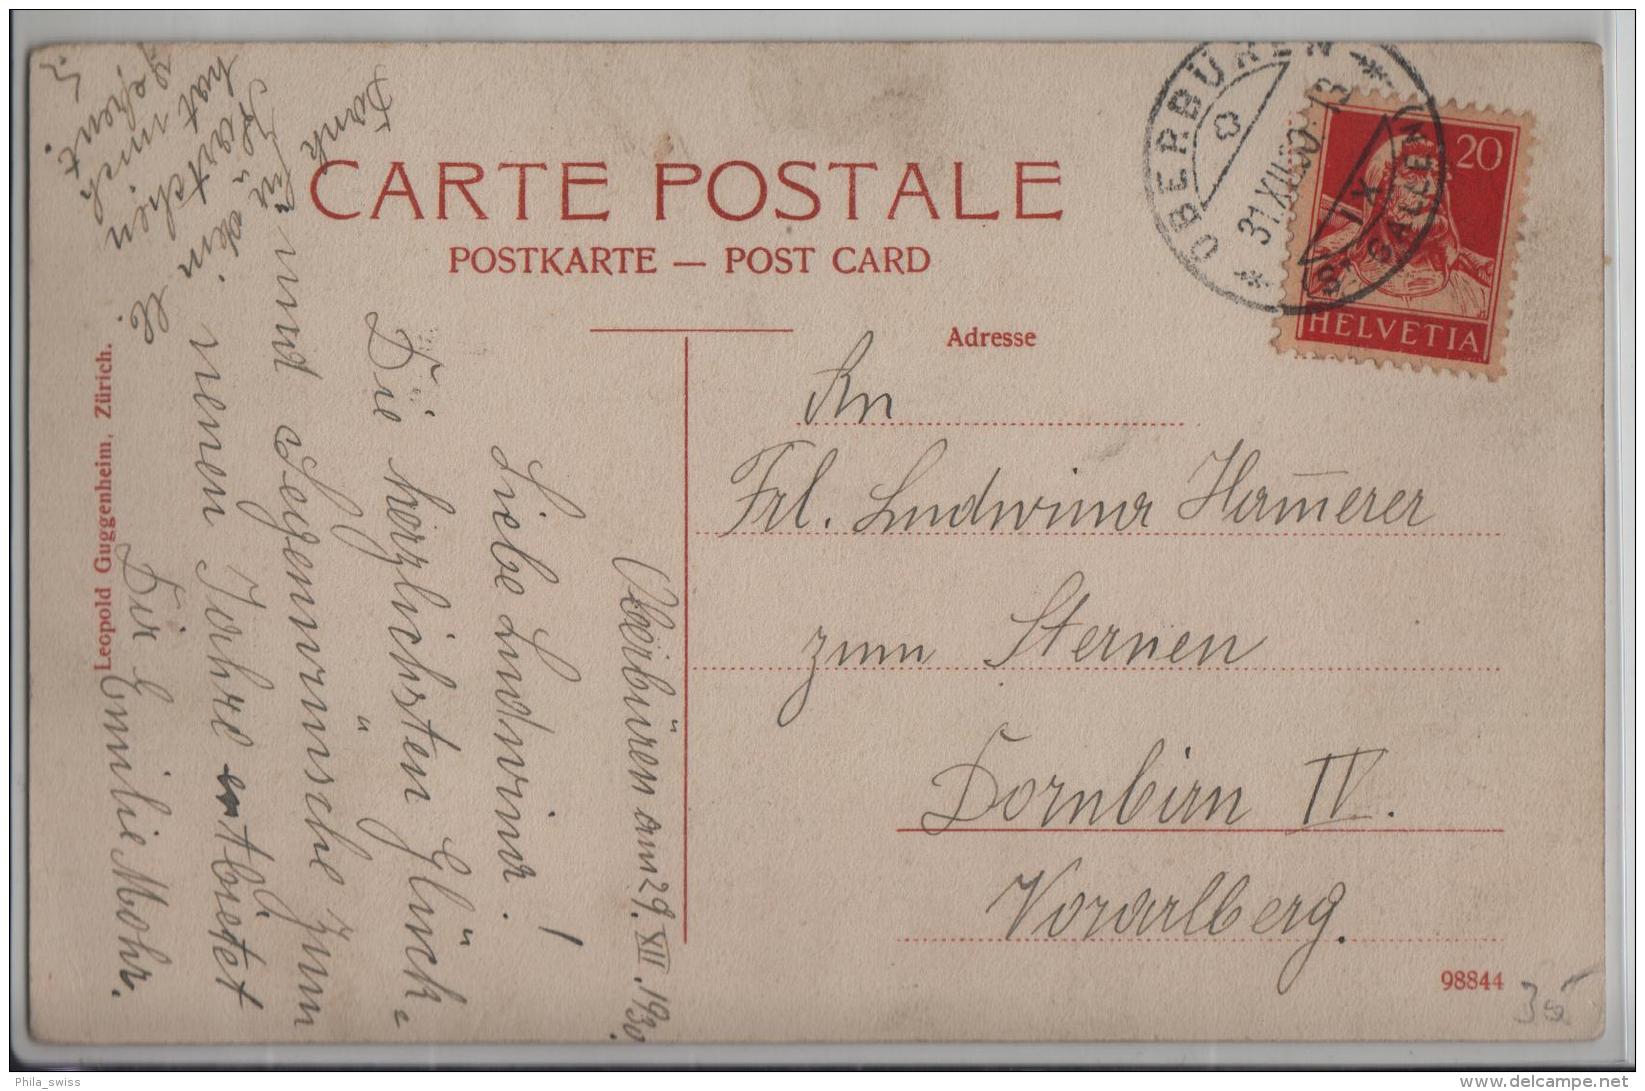 CARTE POSTALE
POSTKARTE — POST CARD
Adresse
OBERBÜREN
31.XII.30. 18
IX
ST. GALLEN
20
HELVETIA
An
Frl. Ludwina Ham̄erer
zum Sternen
Dornbirn IV.
Vorarlberg.
98844
35
Oberbüren am 29. XII. 1930.
Liebe Ludwina!
Die herzlichsten Glück-
und Segenwünsche zum
neuen Jahre entbietet
Dir Emilie Mohr.
Dank
für dein l.
Kärtchen
hat mich
gefreut.
Leopold Guggenheim, Zürich.
Phila_swiss
www.delcampe.net